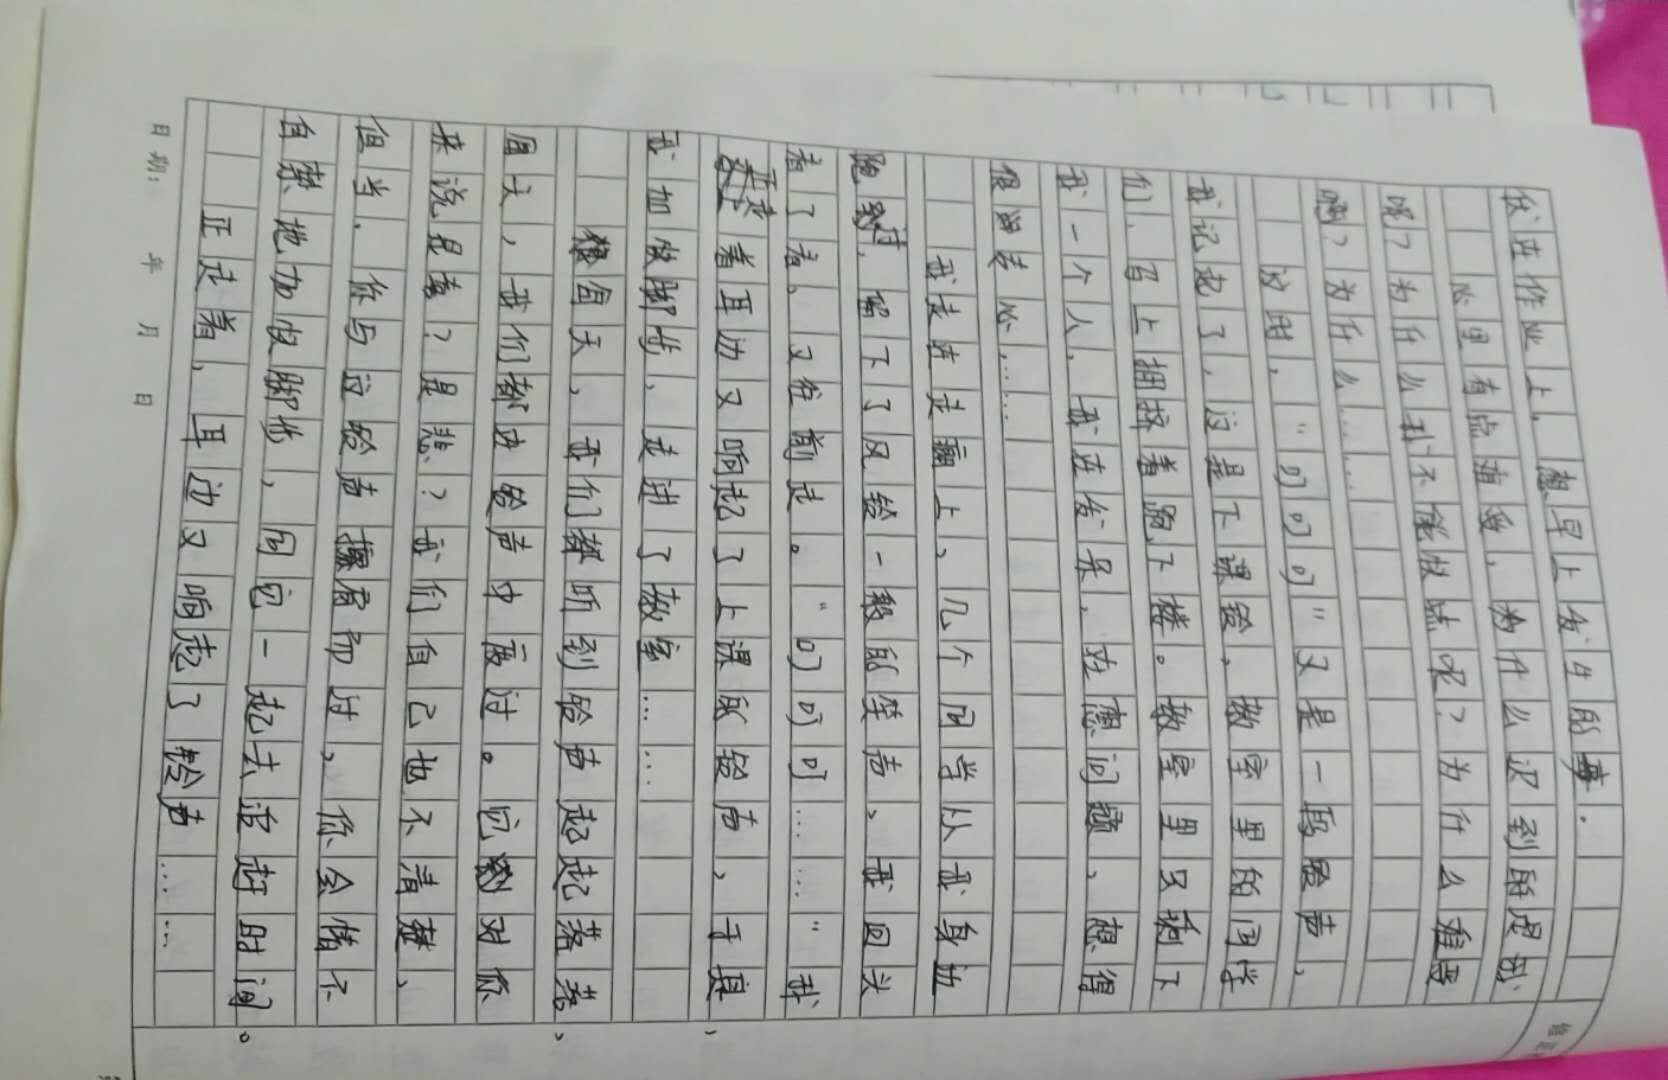 伐进作业上，想早上发生的事．
心里有点难受，为什么迟到的是我
呢？为什么我不能快点呢？为什么难
啊？为什么……
这时，“叮叮叮”又是一阵铃声，
我记起了，这是下课铃，教室里的同学
们，马上拥挤着跑下楼。教室里只剩下
我一个人，我在发呆，在想问题，想得
很留心……
我走进走廊上，几个同学从我身边
跑过，留下了风铃一般的笑声，我回头
看了看，又往前走。“叮叮叮……”我
正走着耳边又响起了上课的铃声，于是，
我加快脚步，走进了教室……
每天，我们都听到铃声起起落落，
每天，我们都在铃声中度过。它对你
来说是喜？是悲？我们自己也不清楚，
但当，你与这铃声擦肩而过，你会情不
自禁地加快脚步，同它一起去追赶时间。
正走着，耳边又响起了铃声……
日期： 年 月 日